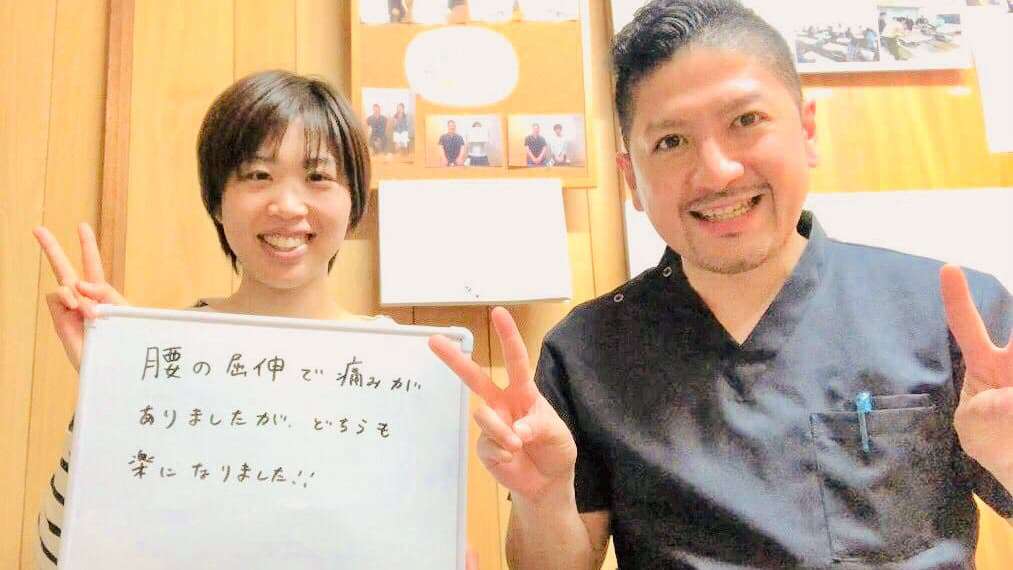 腰の屈伸で痛みが
ありましたが、どちらも
楽になりました!!